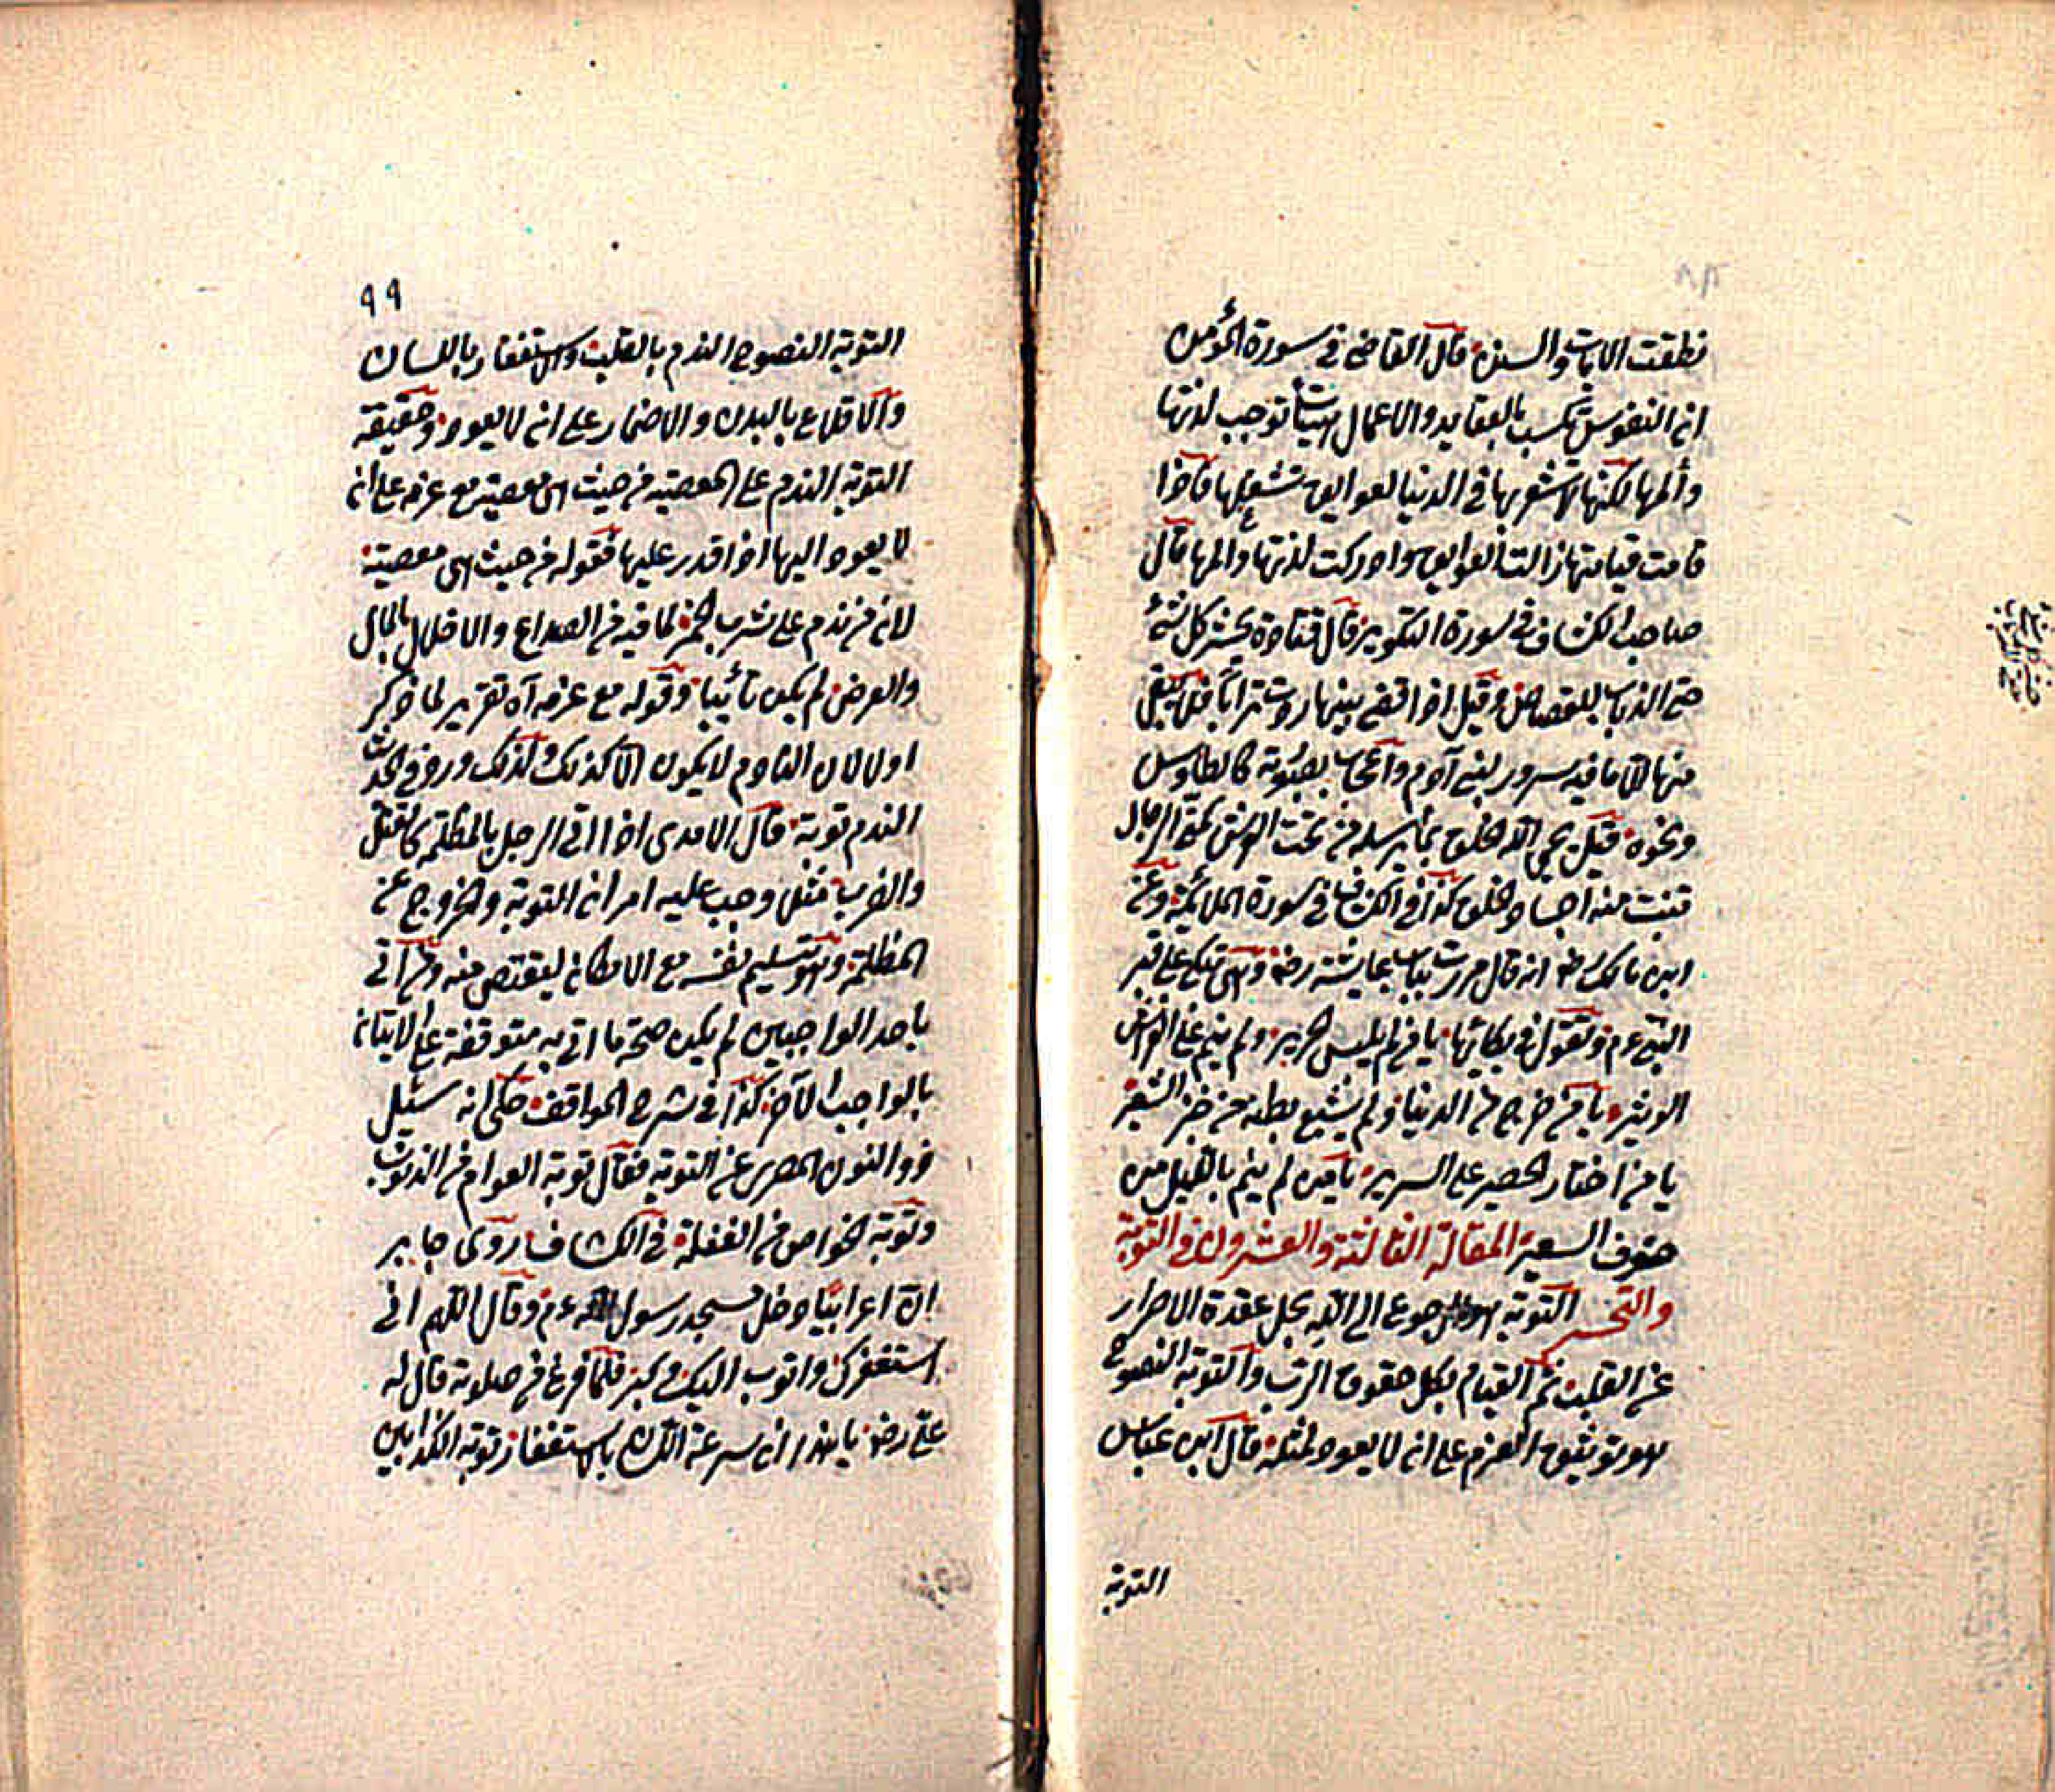 نطقت الايات والسنن قال القاضي في سورة المؤمن
ان النفوس تكسب بالعقايد والاعمال هيئات توجب لذتها
وألمها لكنها لا تشعر بها في الدنيا لعوايق تشغلها فاذا
قامت قيامتها زالت العوايق وادركت لذتها وألمها قال
صاحب الكشاف في سورة التكوير قال قتادة يحشر كل شئ
حتى الذباب للقصاص وقيل اذا قضى بينها ردت ترابا فلا يبقى
منها الا ما فيه سرور لبني آدم واعجاب بصورته كالطاوس
ونحوه قيل يحيي الله الخلق بماء يرسله من تحت العرش كمني الرجال
تنبت منه اجساد الخلق كذا في الكشاف في سورة الملائكة وعن
ابن مالك رضه انه قال مررت بباب عايشة رضه وهي تبكي على قبر
النبي عم وتقول في بكائها يا من لم يلبس الحرير ولم ينم على الفراش
الوثير يا من خرج من الدنيا ولم يشبع بطنه من خبز الشعير
يا من اختار الحصير على السرير يا من لم ينم بالليل من
خوف السعير المقالة الثالثة والعشرون في التوبة
والتحسر التوبة هو الرجوع الى الله بحل عقدة الاصرار
عن القلب ثم القيام بكل حقوق الرب والتوبة النصوح
هو توثيق العزم على ان لا يعود لمثله قال ابن عباس
التوبة
٩٩
التوبة النصوح الندم بالقلب والاستغفار باللسان
والاقلاع بالبدن والاضمار على ان لا يعود وحقيقة
التوبة الندم على المعصية من حيث هي معصية مع عزم على ان
لا يعود اليها اذا قدر عليها فقوله من حيث هي معصية
لان من ندم على شرب الخمر لما فيه من الصداع والاخلال بالمال
والعرض لم يكن تائبا وقوله مع عزم آه تقرير لما ذكر
اولا لان النادم لا يكون الا كذلك ولذلك ورد في الحديث
الندم توبة قال الامدي اذا اتى الرجل بالمظلمة كالقتل
والضرب مثلا وجب عليه امران التوبة والخروج عن
المظلمة وهو تسليم نفسه مع الامكان ليقتص منه ومن اتى
باحد الواجبين لم يكن صحة ما اتى به متوقفة على الاتيان
بالواجب الآخر كذا في شرح المواقف حكي انه سئل
ذو النون المصري عن التوبة فقال توبة العوام من الذنوب
وتوبة الخواص من الغفلة في الكشاف روى جابر
ان اعرابيا دخل مسجد رسول الله عم وقال اللهم اني
استغفرك واتوب اليك وكبر فلما فرغ من صلوته قال له
علي رضه يا هذا ان سرعة اللسان بالاستغفار توبة الكذابين